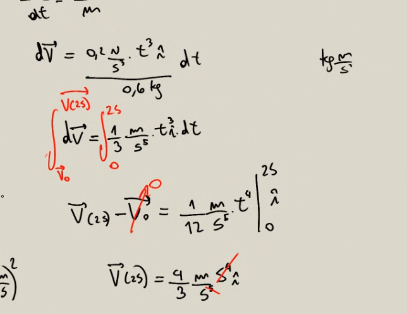 dt m
dV⃗ = 0,2 N/s³ · t³ î / 0,6 kg dt
kg m/s
∫_V⃗₀^V⃗(2s) dV⃗ = ∫₀^2s 1/3 m/s⁵ · t³ î · dt
V⃗(2s) – V⃗₀ 0 = 1/12 m/s⁵ · t⁴ |₀^2s î
m/s)²
V⃗(2s) = 4/3 m/s⁵ s⁴ î